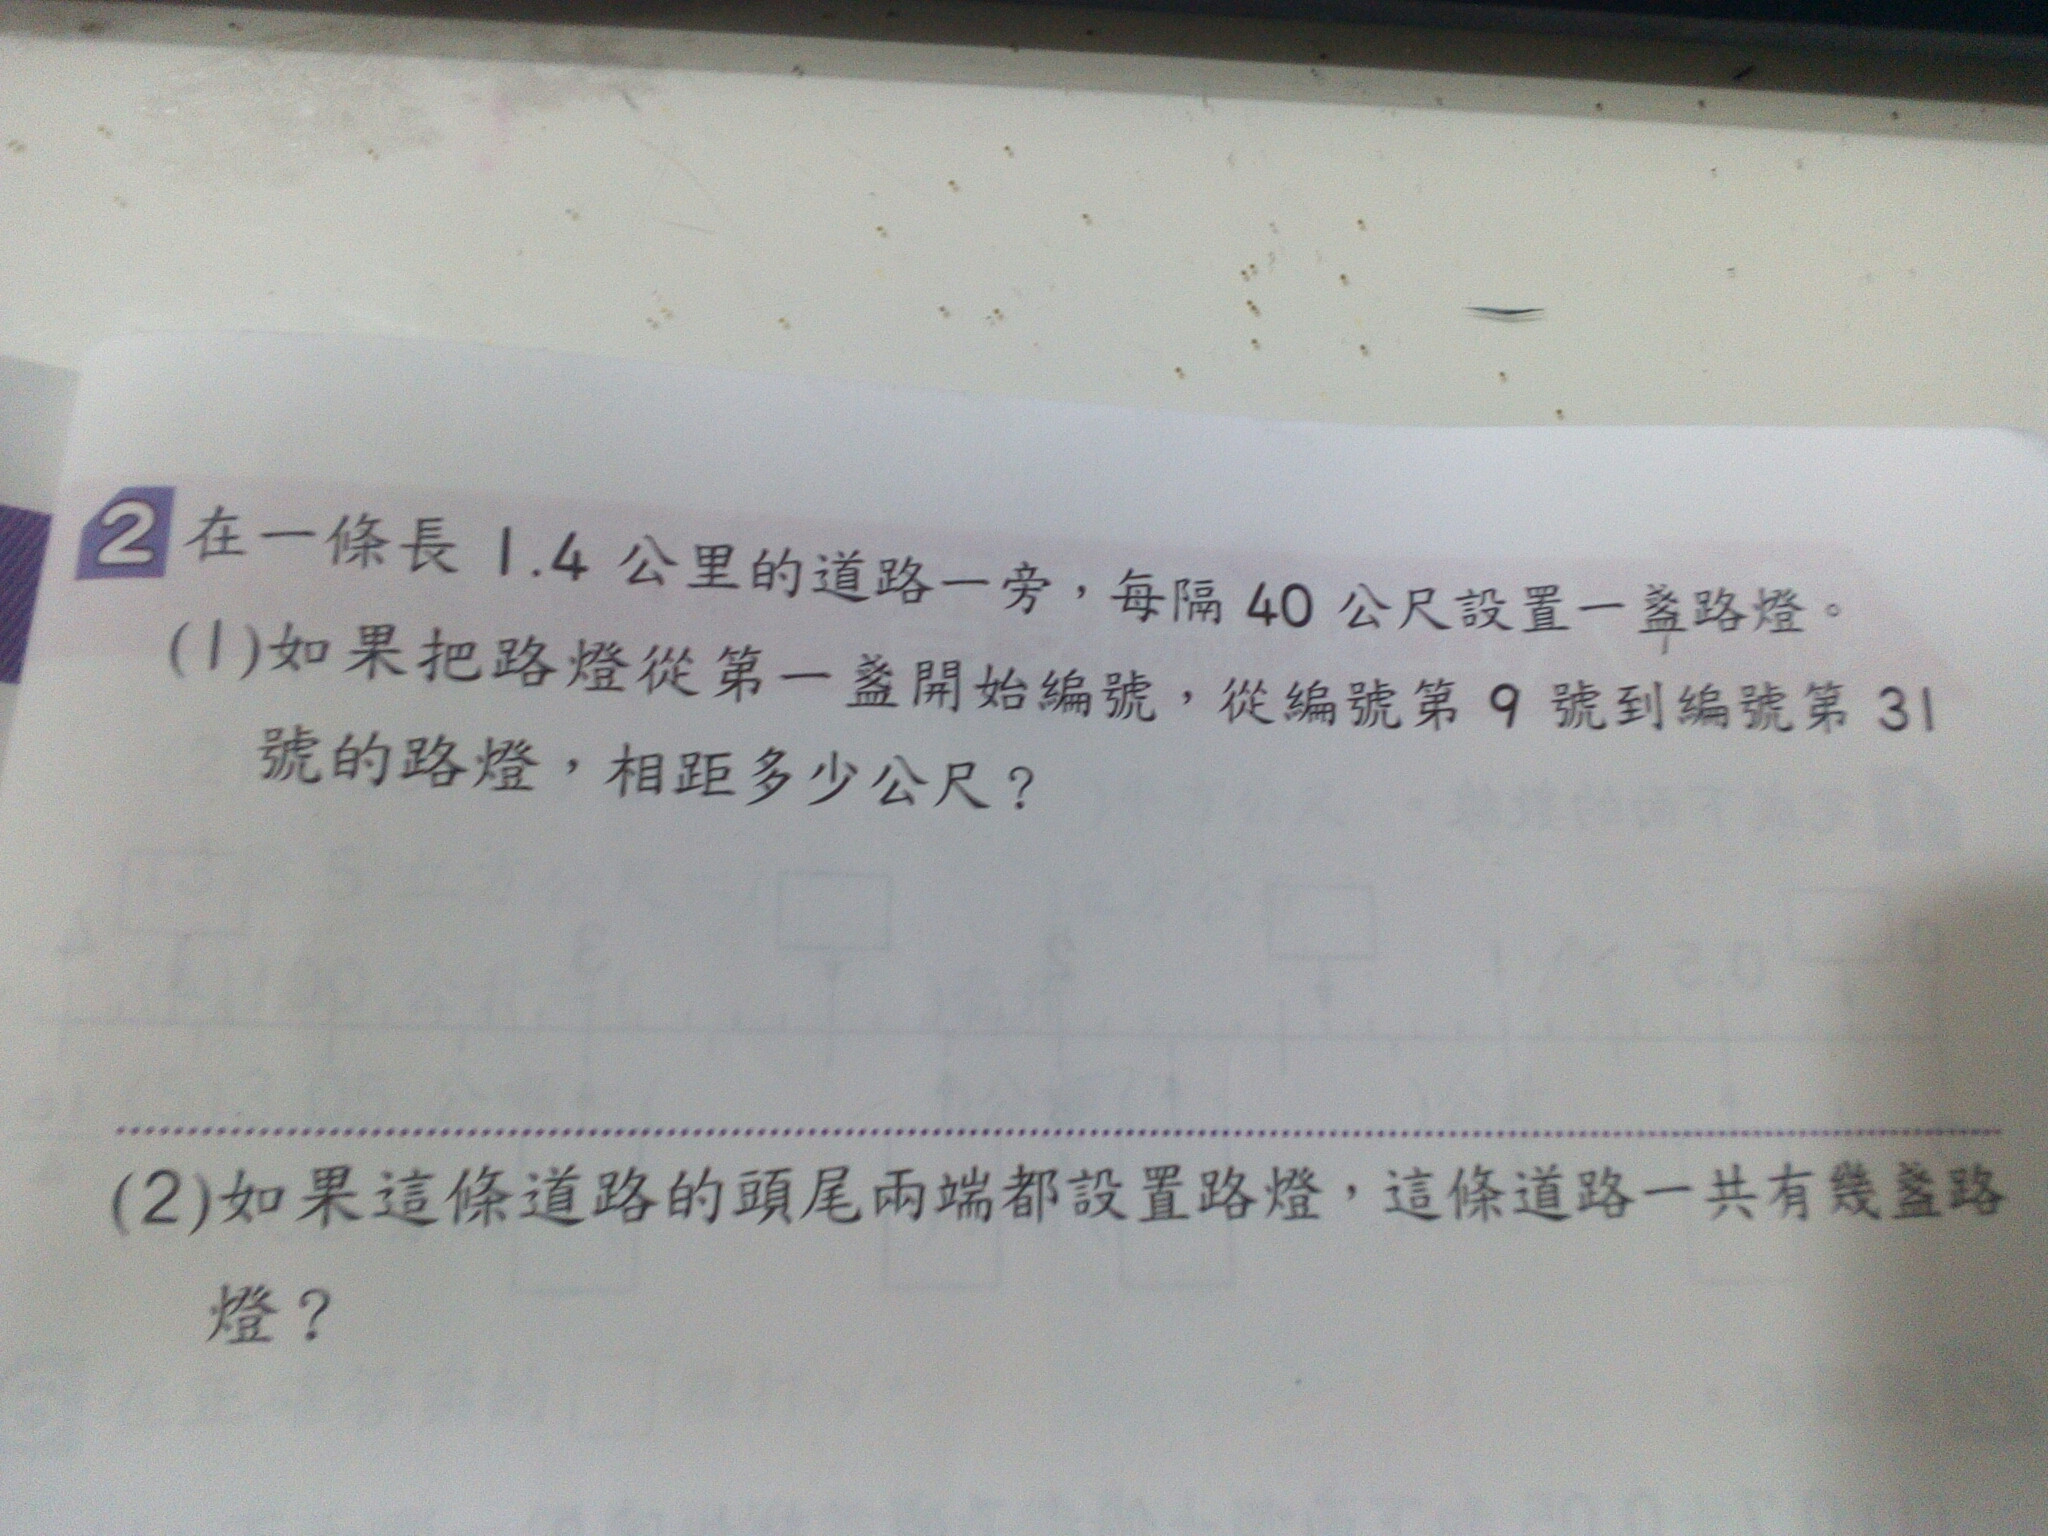 2 在一條長 1.4 公里的道路一旁，每隔 40 公尺設置一盞路燈。
(1)如果把路燈從第一盞開始編號，從編號第 9 號到編號第 31
號的路燈，相距多少公尺？
(2)如果這條道路的頭尾兩端都設置路燈，這條道路一共有幾盞路
燈？